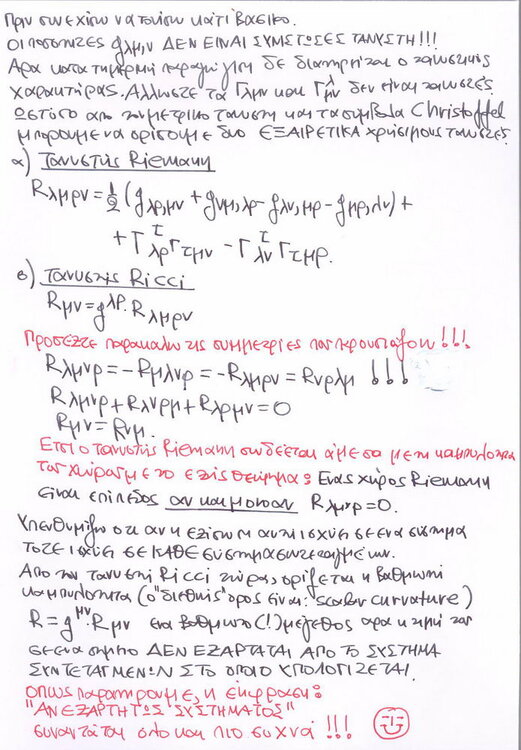 Πριν συνεχίσω να τονίσω κάτι βασικό.
Οι ποσότητες gλμ,ν ΔΕΝ ΕΙΝΑΙ ΣΥΝΙΣΤΩΣΕΣ ΤΑΝΥΣΤΗ!!!
Άρα κατά τη μερική παραγώγιση δε διατηρείται ο τανυστικός
χαρακτήρας. Άλλωστε τα Γλμν και Γ^λ_μν δεν είναι τανυστές.
Ωστόσο από τον μετρικό τανυστή και τα σύμβολα Christoffel
μπορούμε να ορίσουμε δύο ΕΞΑΙΡΕΤΙΚΑ χρήσιμους τανυστές
α) Τανυστής Riemann
Rλμρν = 1/2 (gλρ,μν + gνμ,λρ - gλν,μρ - gμρ,λν) +
+ Γ^τ_λρ Γτμν - Γ^τ_λν Γτμρ.
β) Τανυστής Ricci
Rμν = g^λρ · Rλμρν
Προσέξτε παρακαλώ τις συμμετρίες που προκύπτουν!!!
Rλμνρ = -Rμλνρ = -Rλμρν = Rνρλμ !!!
Rλμνρ + Rλνρμ + Rλρμν = 0
Rμν = Rνμ.
Έτσι ο τανυστής Riemann συνδέεται άμεσα με τη καμπυλότητα
του χώρου με το εξής θεώρημα: Ένας χώρος Riemann
είναι επίπεδος αν και μόνον Rλμνρ = 0.
Υπενθυμίζω οτι αν η εξίσωση αυτή ισχύει σε ένα σύστημα
τότε ισχύει σε ΚΑΘΕ σύστημα συντεταγμένων.
Από τον τανυστή Ricci τώρα, ορίζεται η βαθμωτή
καμπυλότητα (ο "διεθνής" όρος είναι: scalar curvature)
R = g^μν · Rμν ένα βαθμωτό (!) μέγεθος άρα η τιμή του
σε ένα σημείο ΔΕΝ ΕΞΑΡΤΑΤΑΙ ΑΠΟ ΤΟ ΣΥΣΤΗΜΑ
ΣΥΝΤΕΤΑΓΜΕΝΩΝ ΣΤΟ ΟΠΟΙΟ ΥΠΟΛΟΓΙΖΕΤΑΙ.
Όπως παρατηρούμε, η έκφραση:
"ΑΝΕΞΑΡΤΗΤΩΣ ΣΥΣΤΗΜΑΤΟΣ"
συναντάται όλο και πιο συχνά!!!